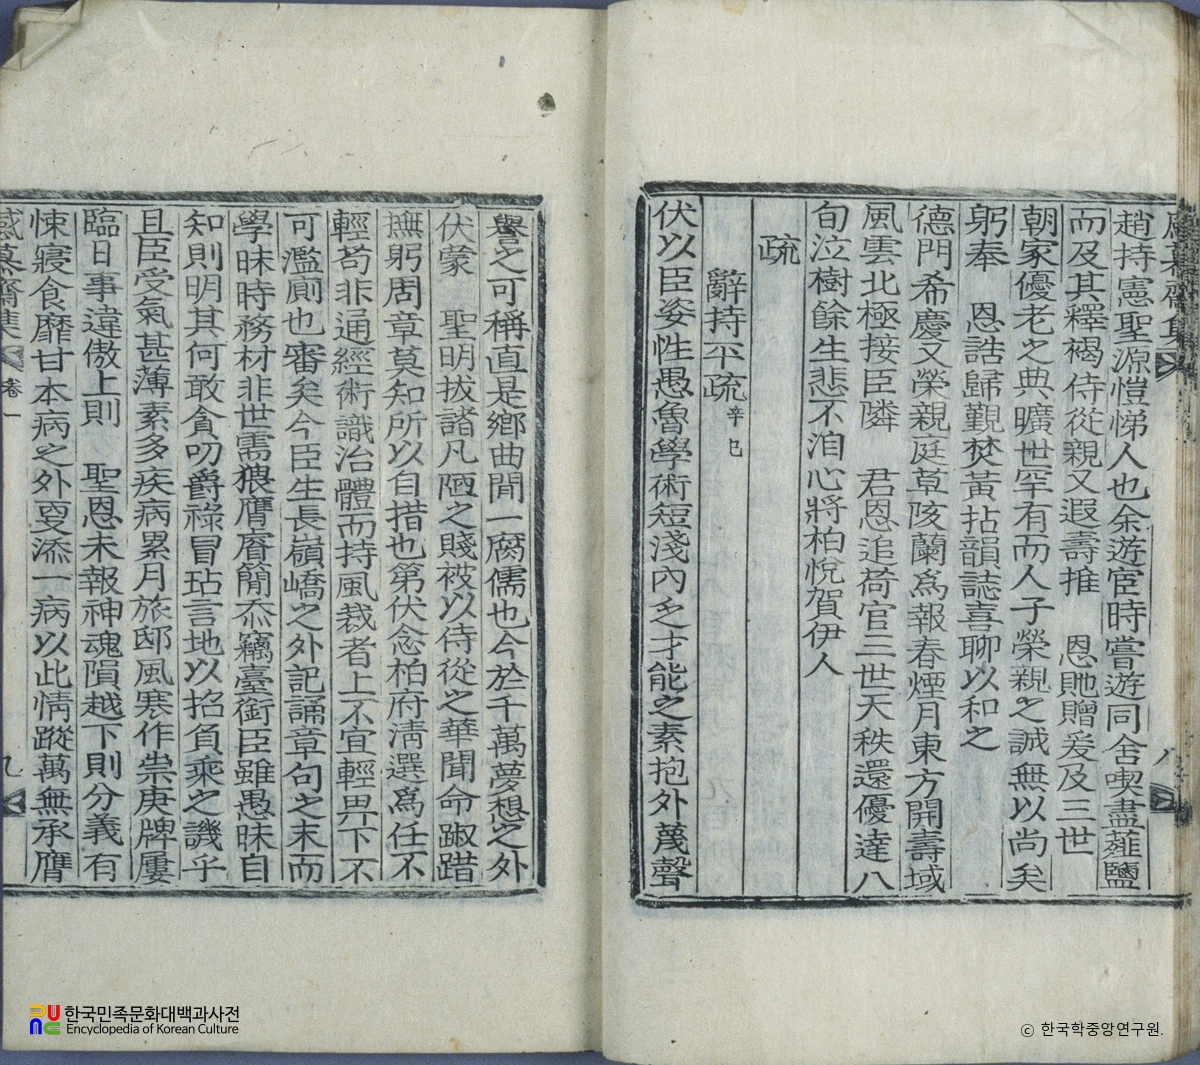 趙持憲聖源愷悌人也余遊宦時嘗遊同舍喫盡薤鹽
而及其釋褐侍從親又遐壽推 恩貤贈爰及三世
朝家優老之典曠世罕有而人子榮親之誠無以尚矣
躬奉 恩誥歸覲焚黃拈韻誌喜聊以和之
德門希慶又榮親庭草陔蘭爲報春煙月東方開壽域
風雲北極接臣隣 君恩追荷官三世天秩還優達八
旬泣樹餘生悲不洎心將柏悅賀伊人
疏
辭持平疏 辛巳
伏以臣姿性愚魯學術短淺內乏才能之素抱外蔑聲
譽之可稱直是鄉曲間一腐儒也今於千萬夢想之外
伏蒙 聖明拔諸凡陋之賤被以侍從之華聞命踧踖
撫躬周章莫知所以自措也第伏念柏府清選爲任不
輕苟非通經術識治體而持風裁者上不宜輕畀下不
可濫廁也審矣今臣生長嶺嶠之外記誦章句之末而
學昧時務材非世需猥膺睿簡忝竊臺銜臣雖愚昧自
知則明其何敢貪叨爵祿冒玷言地以招負乘之譏乎
且臣受氣甚薄素多疾病累月旅邸風寒作祟庚牌屢
臨日事違傲上則 聖恩未報神魂隕越下則分義有
悚寢食靡甘本病之外更添一病以此情蹤萬無承膺
感慕齋集 卷一 九
한국민족문화대백과사전
Encyclopedia of Korean Culture
ⓒ 한국학중앙연구원.